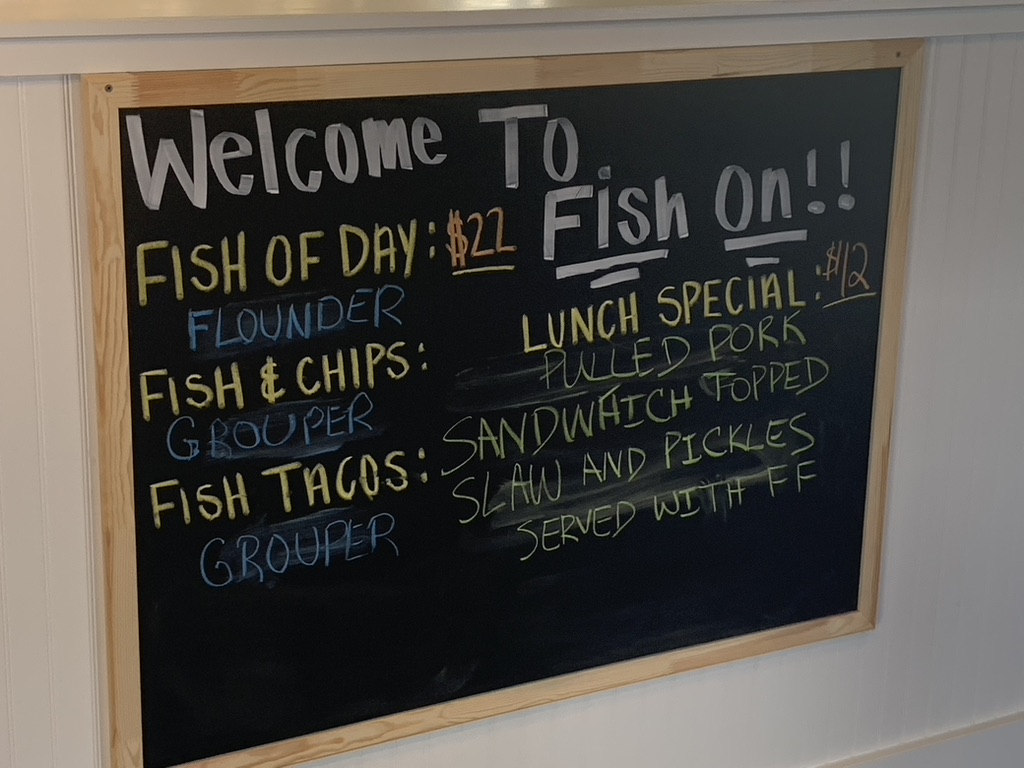 Welcome To
Fish On!!
FISH OF DAY: $22
FLOUNDER
FISH & CHIPS:
GROUPER
FISH TACOS:
GROUPER
LUNCH SPECIAL: $12
PULLED PORK
SANDWHICH TOPPED
SLAW AND PICKLES
SERVED WITH FF